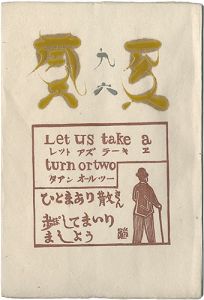 九
六
Let us take a
レツト アズ テーキ ヱ
turn or two
タアン オール ツー
ひとまあり散さん
歩ぽしてまいり
ましよう